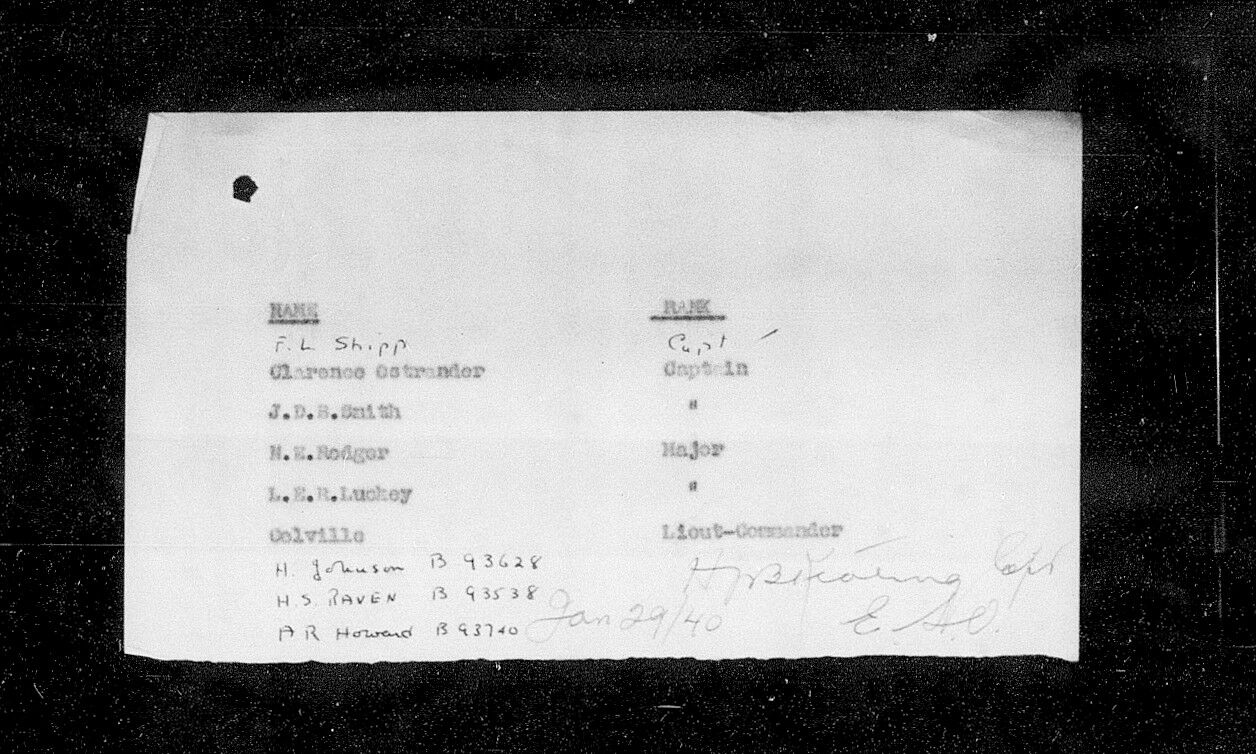 NAME RANK
F. L Shipp Capt
Clarence Ostrander Captain
J.D.S.Smith "
N.E.Rodger Major
L.E.R.Luckey "
Colville Lieut-Commander
H. Johnson B 93628
H.S. RAVEN B 93538
A R Howard B 93740
Keating Capt
Jan 29/40 E.A.O.